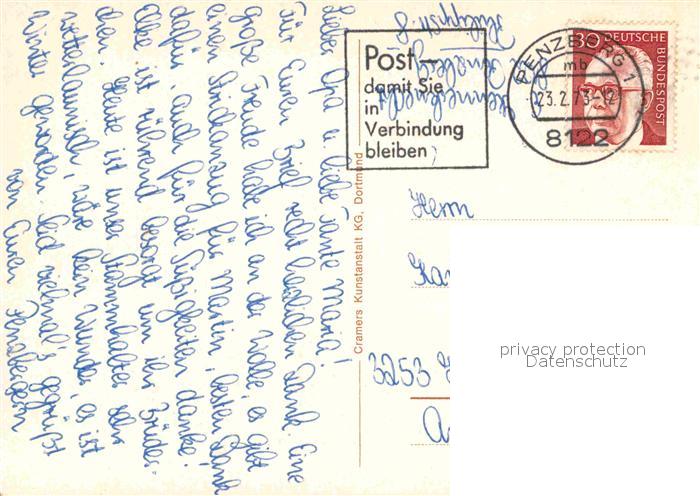 Lieber Opa u. liebe Tante Maria!
Für Euren Brief recht herzlichen Dank. Eine
große Freude habe ich an der Wolle, es gibt
einen Strickanzug für Martin, besten Dank
dafür, auch für die Süßigkeiten danke.
Elke ist rührend besorgt um ihr Brüder-
chen. Heute ist unser Stammhalter sehr
wetterlaunisch, wäre kein Wunder, es ist
Winter geworden. Seid vielmal's gegrüßt
von Euren Penzbergern
Post –
damit Sie
in
Verbindung
bleiben
PENZBERG 1
mb
23.2.73-12
8122
30
DEUTSCHE
BUNDESPOST
Cramers Kunstanstalt KG, Dortmund
Herrn
Kar
3253
privacy protection
Datenschutz